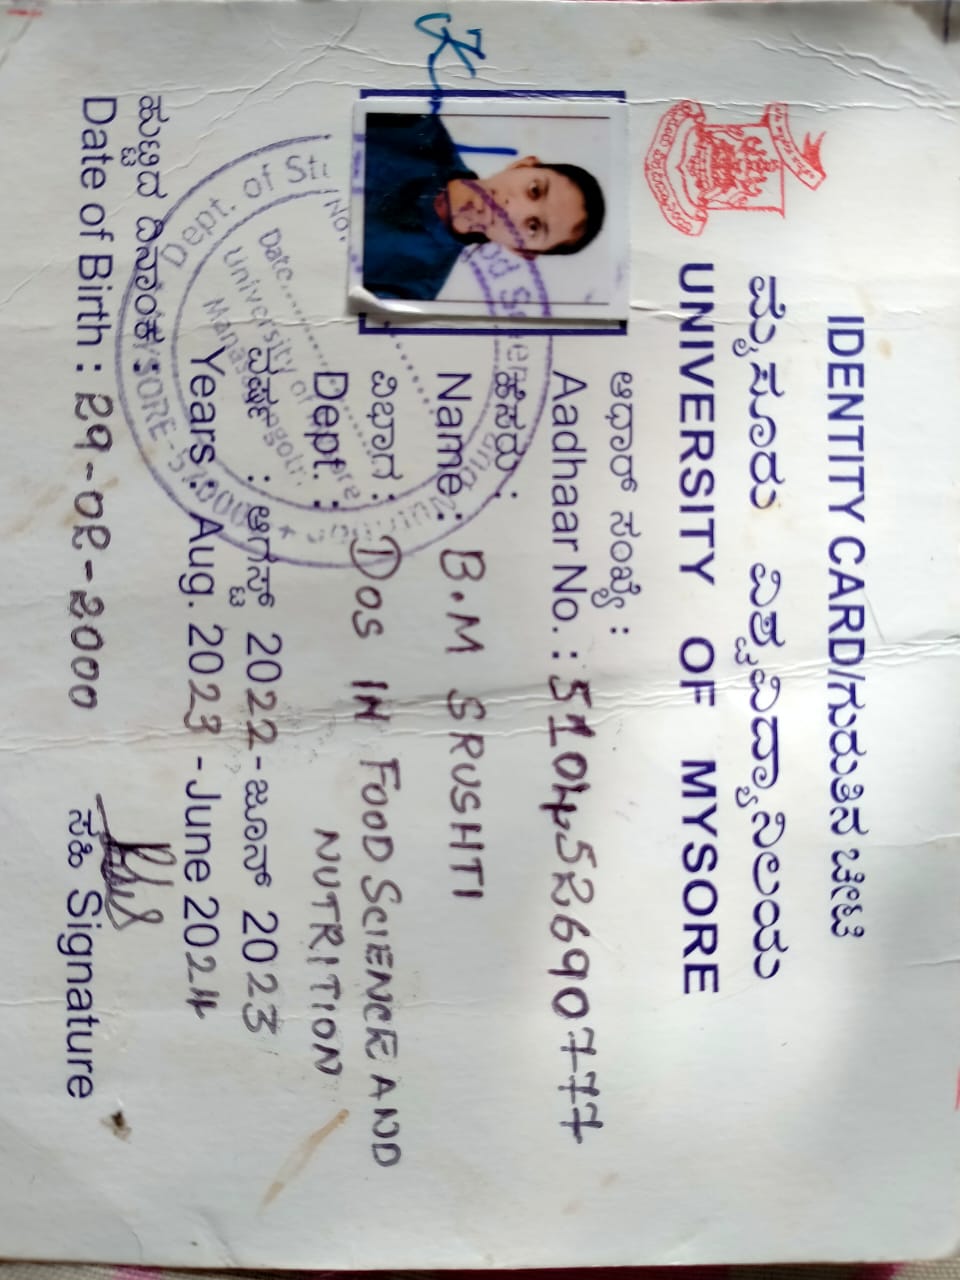 IDENTITY CARD/ಗುರುತಿನ ಚೀಟಿ
ಮೈಸೂರು ವಿಶ್ವವಿದ್ಯಾನಿಲಯ
UNIVERSITY OF MYSORE
ಆಧಾರ್ ಸಂಖ್ಯೆ :
Aadhaar No. : 510452690777
ಹೆಸರು :
Name : B.M SRUSHTI
ವಿಭಾಗ : DOS IN FOOD SCIENCE AND
Dept. : NUTRITION
ವರ್ಷ : ಆಗಸ್ಟ್ 2022-ಜೂನ್ 2023
Years : Aug. 2023 -June 2024
ಹುಟ್ಟಿದ ದಿನಾಂಕ :
Date of Birth : 29-02-2000
ಸಹಿ Signature
Dept. of Food Science and Nutrition
No.
Date
University of
MYSORE-